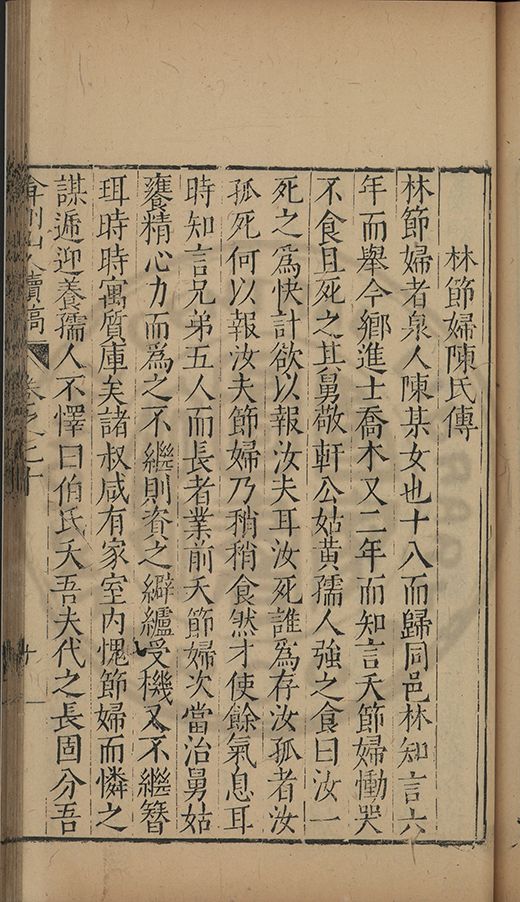 林節婦陳氏傳
林節婦者泉人陳某女也十八而歸同邑林知言六
年而舉今鄉進士喬木又二年而知言夭節婦慟哭
不食且死之其舅敬軒公姑黃孺人強之食曰汝一
死之為快計欲以報汝夫耳汝死誰為存汝孤者汝
孤死何以報汝夫節婦乃稍稍食然才使餘氣息耳
時知言兄弟五人而長者業前夭節婦次當治舅姑
饔精心力而為之不繼則資之澼纑受機又不繼簪
珥時時寓質庫矣諸叔咸有家室內愧節婦而憐之
謀遞迎養孺人不懌曰伯氏夭吾夫代之長固分吾
弇州山人續稿 卷之七十 十一